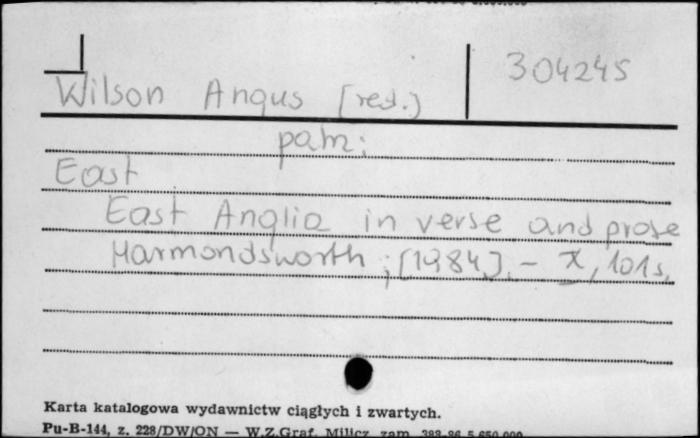 304245
Wilson Angus [red.]
patrz:
East
East Anglia in verse and prose
Harmondsworth ; [1984]. – X, 101s.
Karta katalogowa wydawnictw ciągłych i zwartych.
Pu-B-144, z. 228/DW/ON — W.Z.Graf. Milicz zam. 388-86 5.650.000